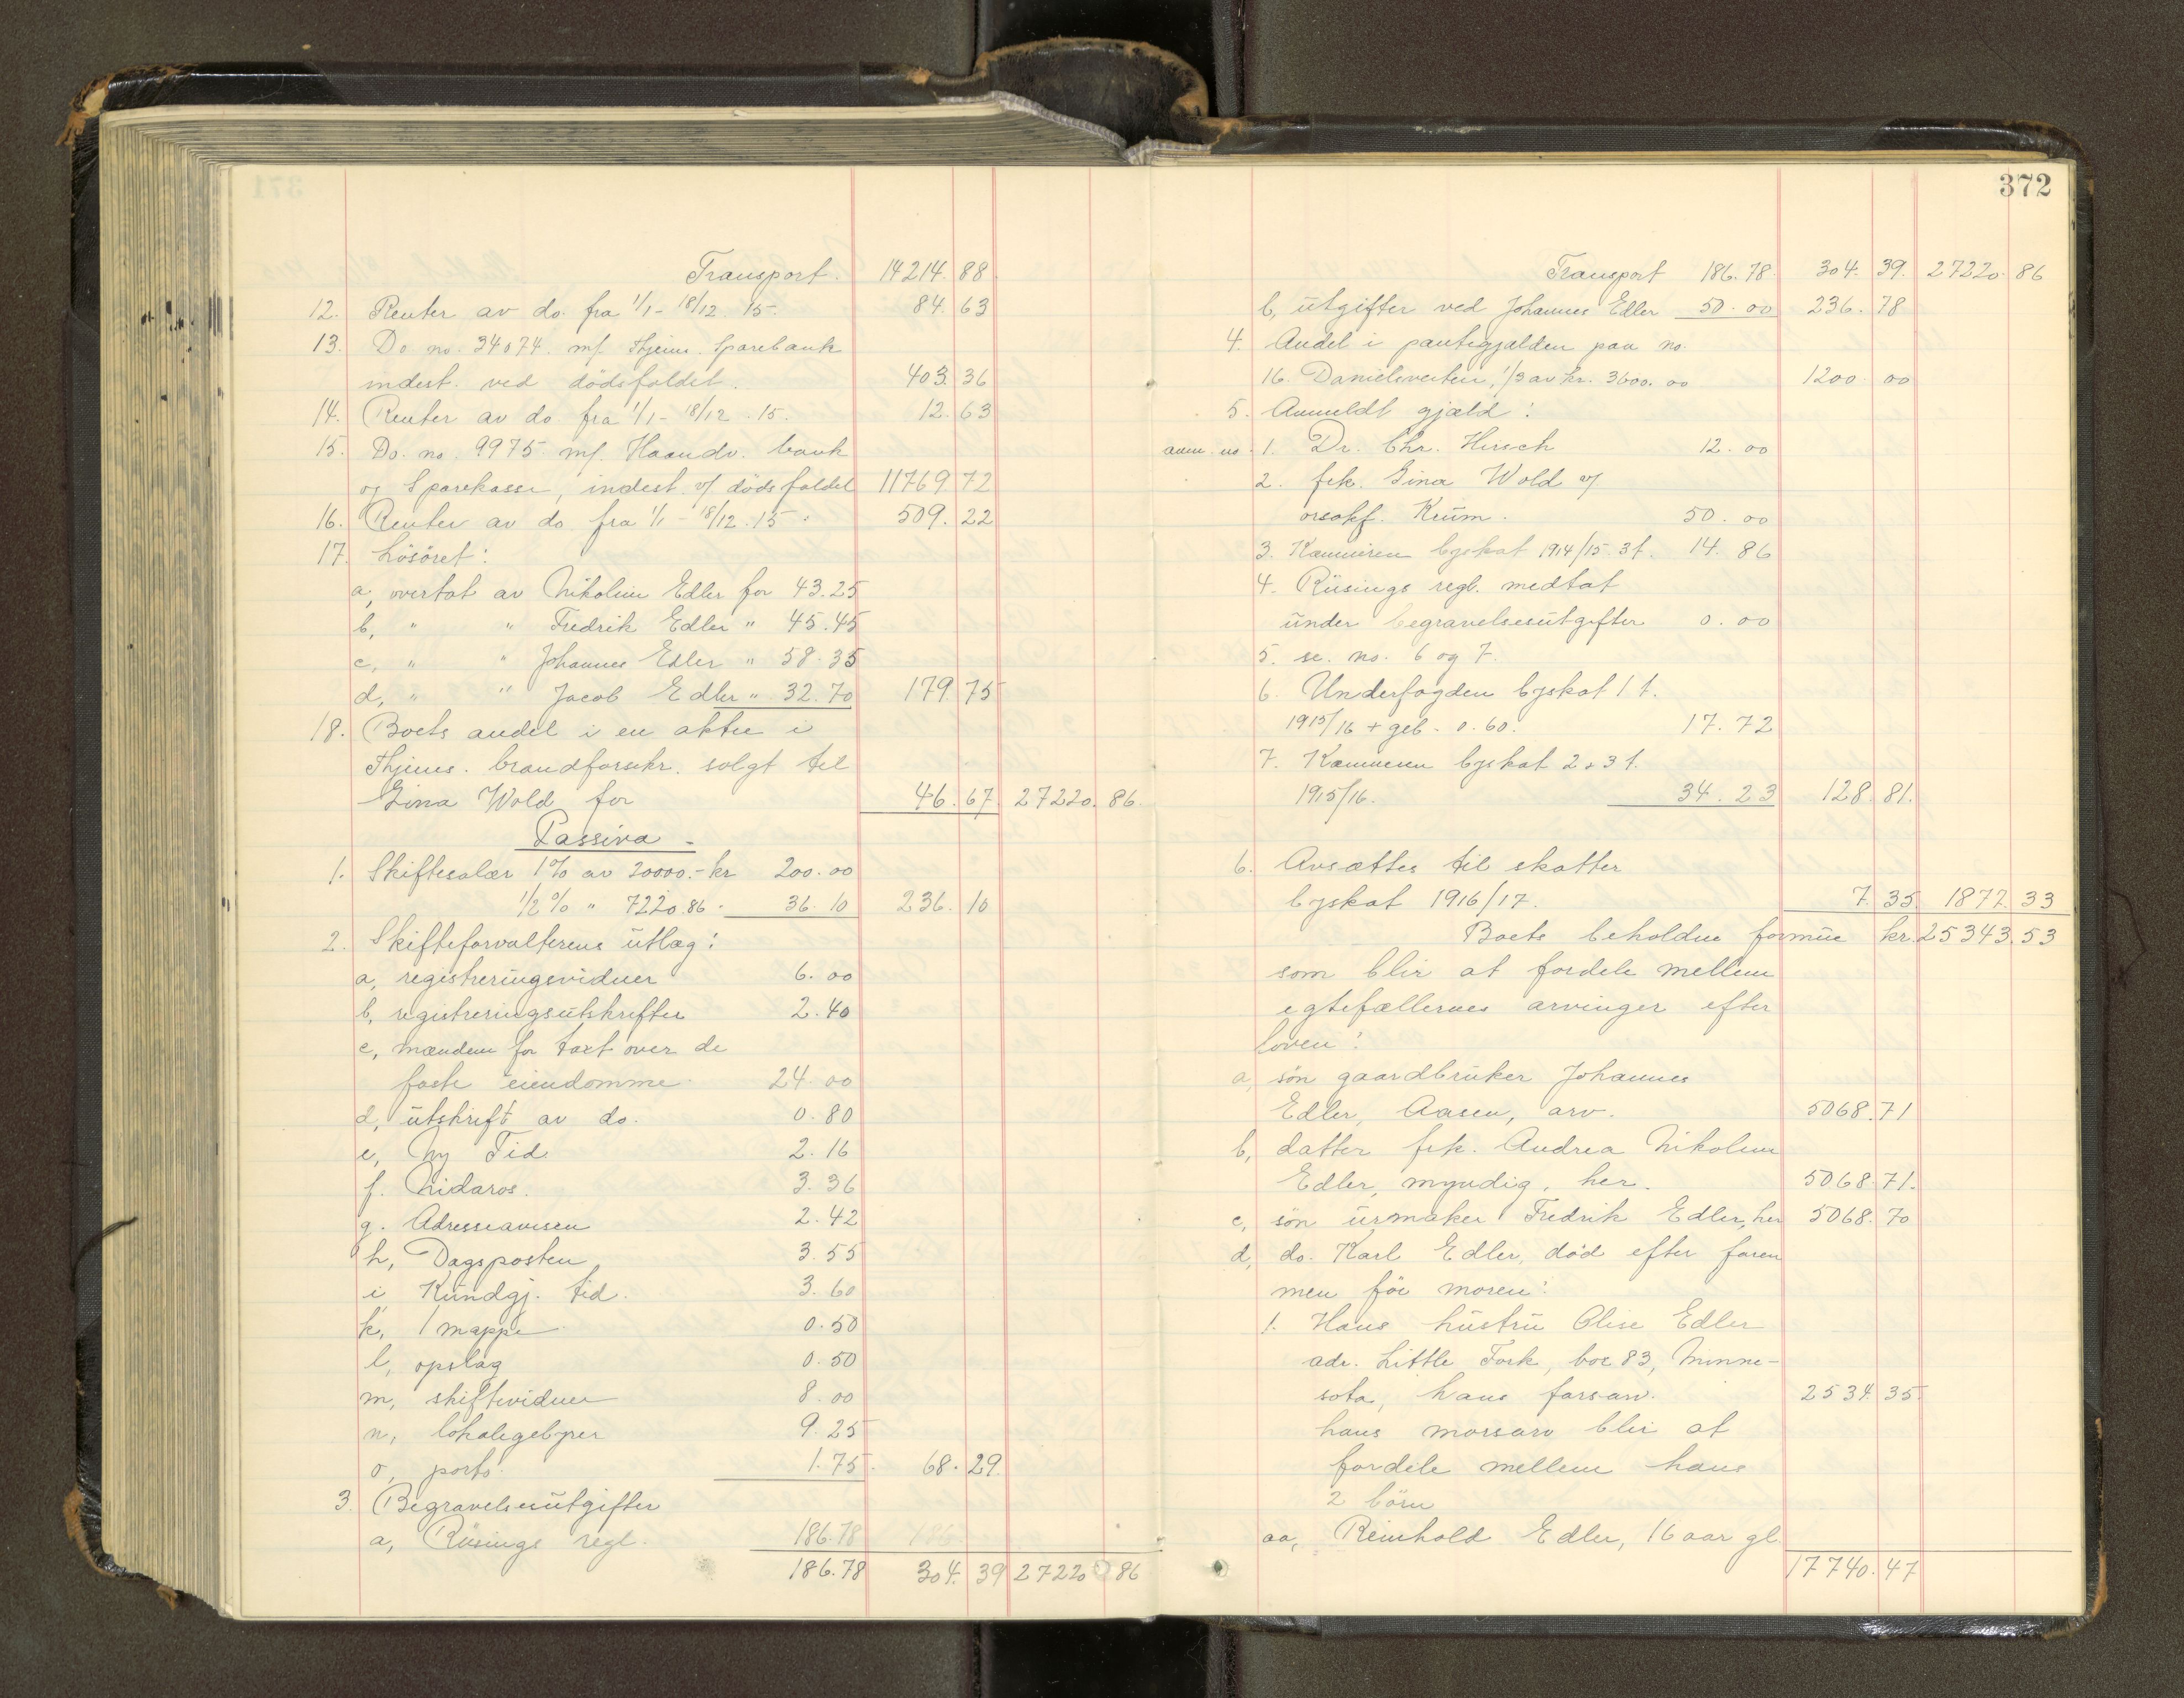 Transport. 14214. 88
12. Renter av do. fra 1/1 - 18/12 15. 84. 63
13. Do no. 34074. mf. Thjems. Sparebank
indest. ved dödsfaldet. 403. 36
14. Renter av do fra 1/1 - 18/12. 15. 12. 63
15. Do. no. 9975 mf. Haandv. bank
og Sparekasse, indest. v/ dödsfaldet 11769 72
16. Renter av do fra 1/1 - 18/12. 15. 509. 22
17. Lösöret:
a, overtat av Nikoline Edler for 43.25
b, " " Fredrik Edler " 45.45
c, " " Johannes Edler " 58.35
d, " " Jacob Edler " 32.70 179. 75
18. Boets andel i en aktie i
Thjems. brandforsikr. solgt til
Gina Wold for 46. 67 27220. 86.
Passiva
1. Skiftesalær 1% av 20000.- kr 200.00
1/2% " 7220.86. 36.10 236. 10
2. Skifteforvalterens utlæg:
a, registreringsvidner 6.00
b, registreringsutskrifter 2.40
c, mændene for taxt over de
faste eiendomme 24.00
d, utskrift av do. 0.80
e, Ny Tid 2.16
f. Nidaros. 3.36
g. Adresseavisen 2.42
h, Dagsposten 3.55
i, Kundgj. tid. 3.60
k, 1 mappe 0.50
l, opslag 0.50
m, skiftevidner 8.00
n, lokalegebyrer 9.25
o, porto 1.75 68. 29.
3. Begravelsesutgifter
a, Rüsings regl. 186.78 186
186.78 304. 39 27220 86
372
Transport 186.78 304. 39. 27220. 86
b, utgifter ved Johannes Edler 50.00 236. 78
4. Andel i pantegjælden paa no.
16. Danielsveiten, 1/3 av kr. 3600.00 1200. 00
5. Anmeldt gjæld:
anm. no. 1. Dr. Chr. Hirsch 12.00
2. frk. Gina Wold v/
orsakf. Krum. 50.00
3. Kæmneren byskat 1914/15. 3 t. 14.86
4. Rüsings regl. medtat
under begravelsesutgifter 0.00
5. se. no. 6 og 7.
6. Underfogden byskat 1 t.
1915/16 + geb. 0.60. 17.72
7. Kæmneren byskat 2 & 3 t.
1915/16. 34.23 128. 81.
6. Avsættes til skatter
byskat 1916/17. 7. 35 1877. 33
Boets beholdne formue kr. 25343. 53
som blir at fordele mellem
egtefællernes arvinger efter
loven:
a, sön gaardbruker Johannes
Edler, Aasen, arv. 5068. 71
b, datter frk. Andrea Nikoline
Edler, myndig, her. 5068. 71.
c, sön urmaker Fredrik Edler, her 5068. 70
d, do. Karl Edler, död efter faren
men för moren:
1. Hans hustru Olise Edler
adr. Little Fork, box 83, Minne-
sota, hans farsarv. 2534. 35
hans morsarv blir at
fordele mellem hans
2 börn
aa, Reinhold Edler, 16 aar gl.
17740. 47